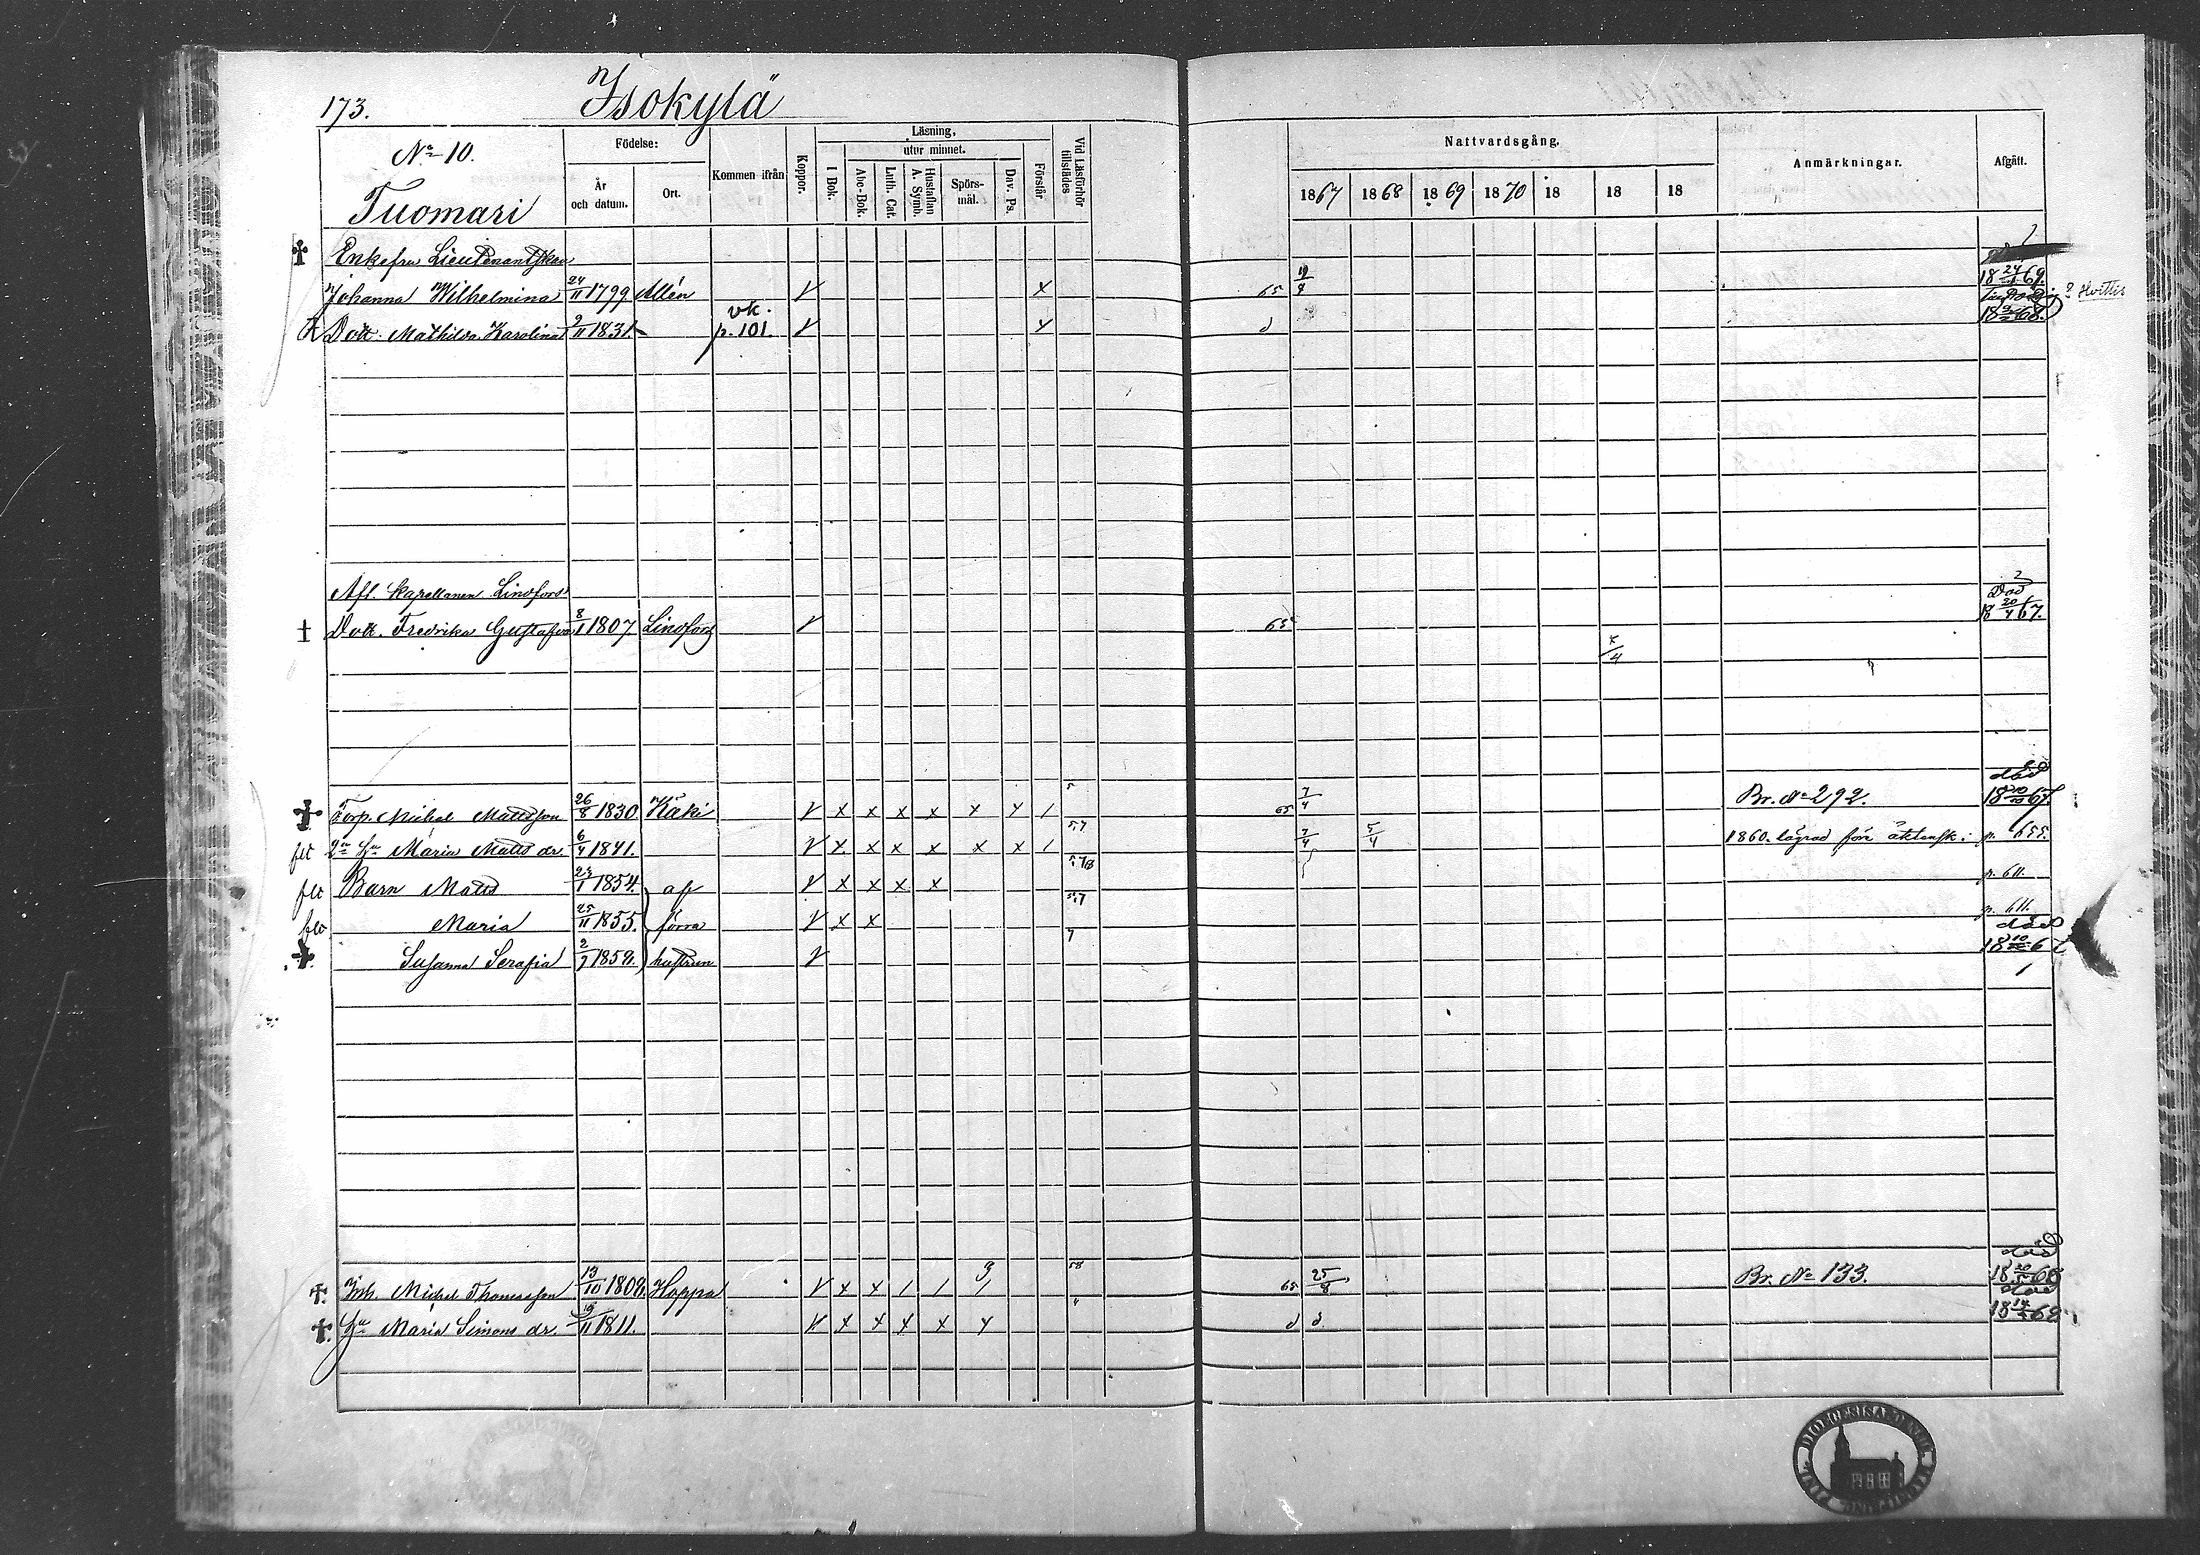 173. Isokylä
Nº 10.
Tuomari
Födelse:
År och datum.
Ort.
Kommen ifrån
Koppor.
Läsning,
utur minnet.
I Bok.
Abc-Bok.
Luth. Cat.
Hustaflan A. Symb.
Spörsmål.
Dav. Ps.
Förstår
Vid Läsförhör tillstädes
Nattvardsgång.
1867 1868 1869 1870 18 18 18
Anmärkningar.
Afgått.
Enkefru Lieutenantskan
Johanna Wilhelmina 24/11 1799 Allén V x 65 19/8 18 24/1 69.
Dott. Mathilda Karolina 2/11 1831 vk. p. 101. V x d 18 68. ? Hvittis
Afl. Kapellanen Lindfors
Dott. Fredrika Gustafva 8/1 1807. Lindfors V 65 Död 18 20/4 67.
x/4
Torp. Michel Mattsson 26/8 1830. Käki V x x x x x x / 5 65 7/4 Br. Nº 292. död 18 67.
flt 2a Hu Maria Matts dr. 6/4 1841. V x x x x x x / 5.7 7/4 5/4 1860. lagrad förr äktensk: p. 655.
flt Barn Matts 23/1 1854. af V x x x x p. 611.
flt Maria 25/11 1855. förra V x x 5.7 p. 611.
Susanna Serafia 2/7 1859. hustrun V 7 död 18 67
Inh. Michel Thomasson 13/10 1808. Hoppa V x x / / 3/ 58 65 25/8 Br. Nº 133. död 18 20/5 68
Hu Maria Simons dr. 19/11 1811. V x x x x x 4 d d död 18 14/4 68.